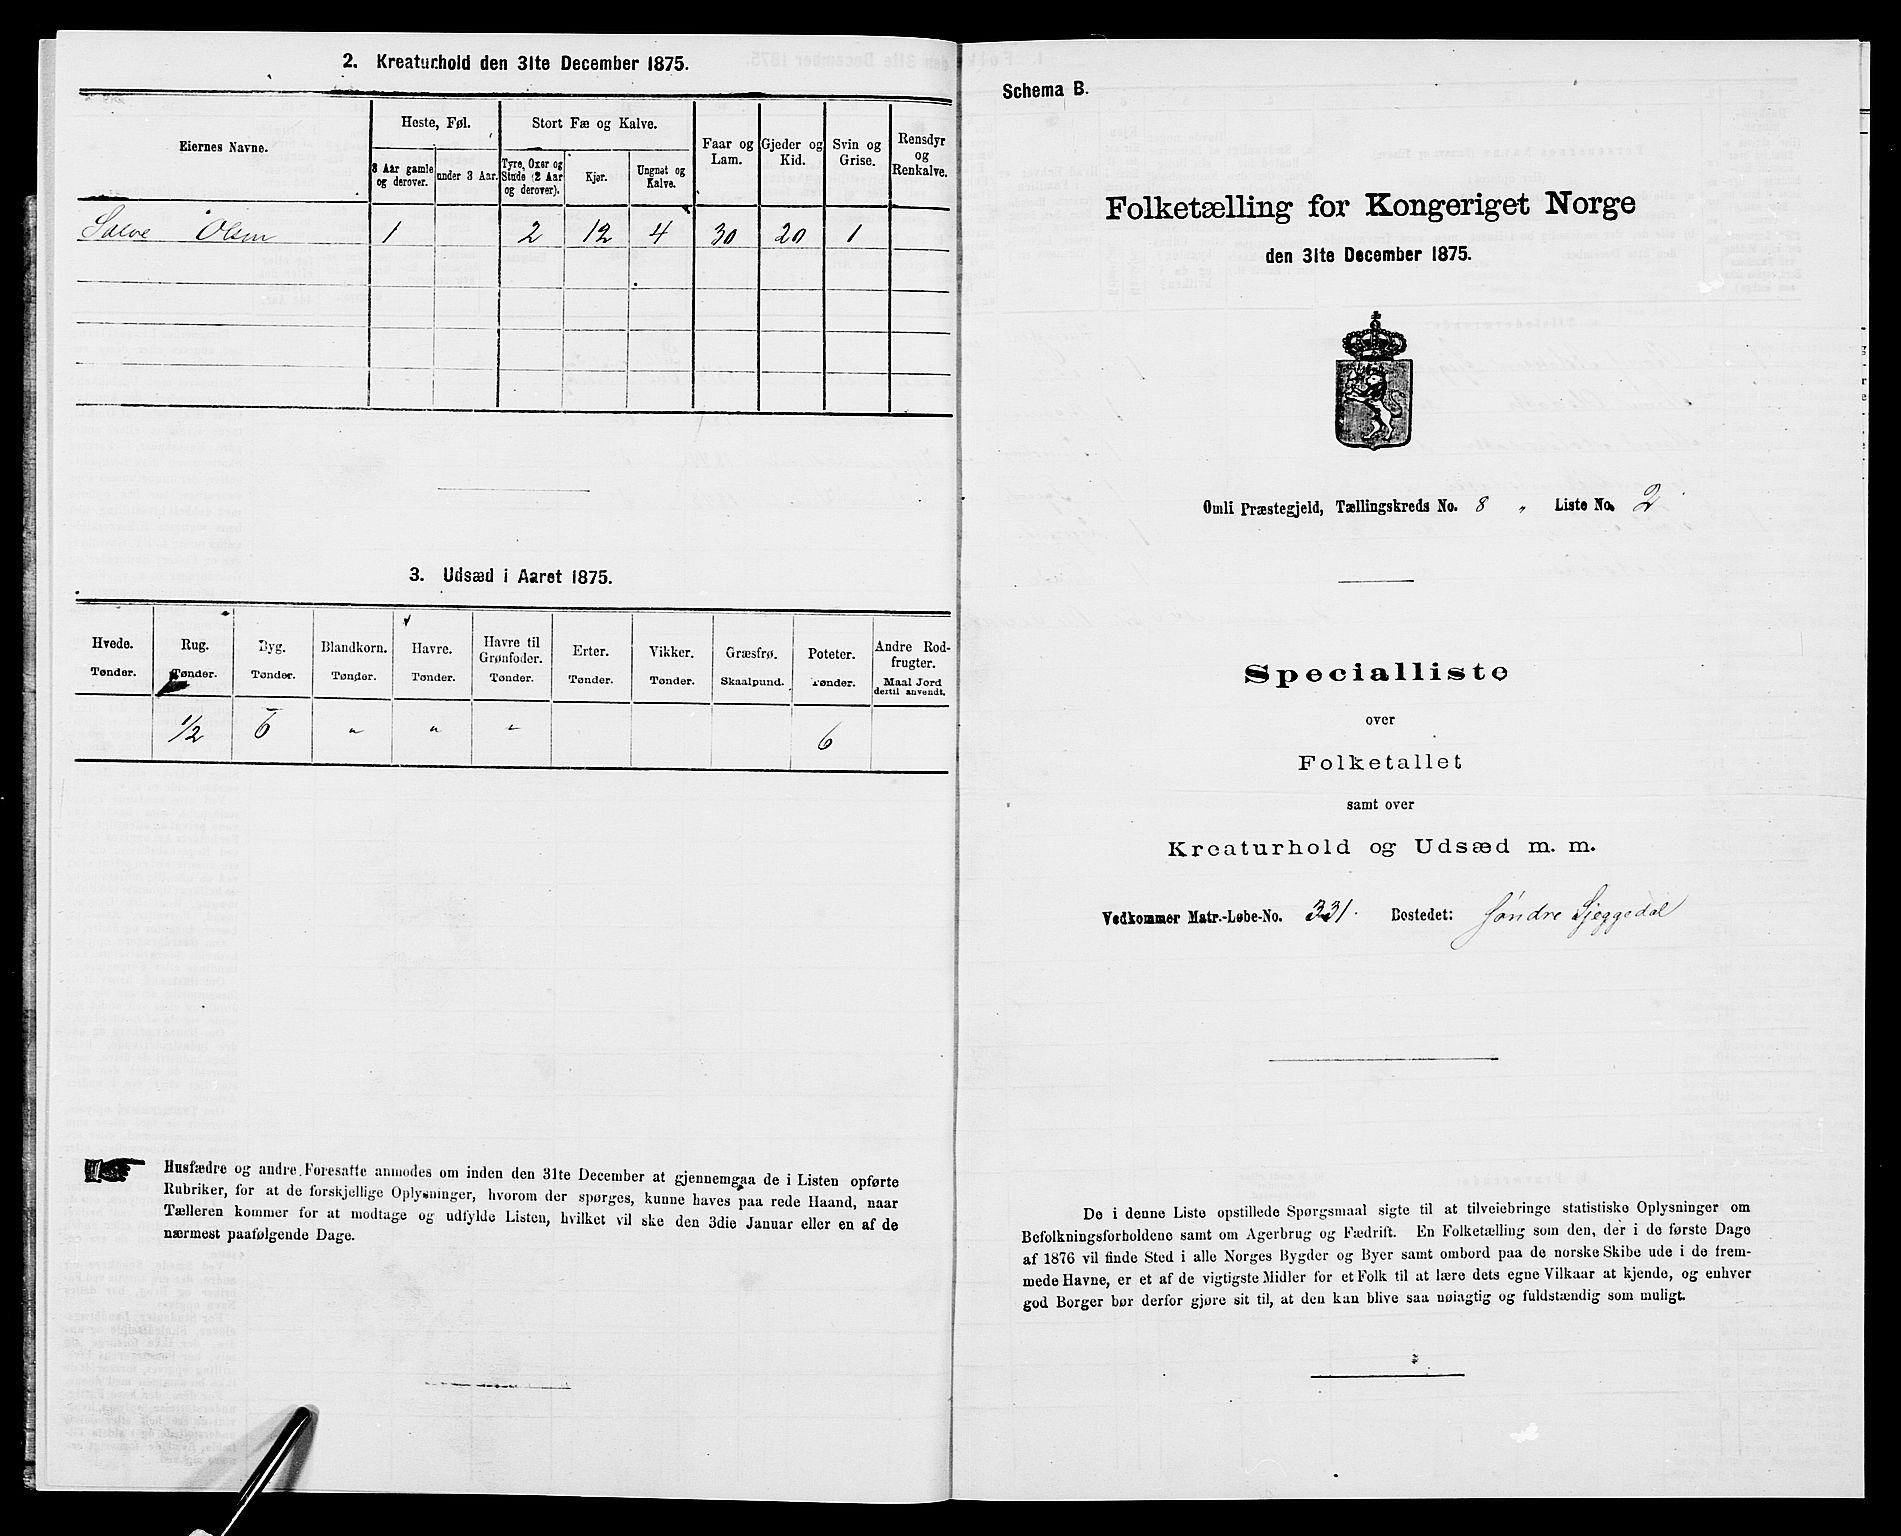 2. Kreaturhold den 31te December 1875.
Eiernes Navne.
Heste, Føl.
3 Aar gamle og derover.
under 3 Aar.
Stort Fæ og Kalve.
Tyre, Oxer og Stude (2 Aar og derover).
Kjør.
Ungnøt og Kalve.
Faar og Lam.
Gjeder og Kid.
Svin og Grise.
Rensdyr og Renkalve.
Salve Olsen 1 2 12 4 30 20 1
3. Udsæd i Aaret 1875.
Hvede. Tønder.
Rug. Tønder.
Byg. Tønder.
Blandkorn. Tønder.
Havre. Tønder.
Havre til Grønfoder. Tønder.
Erter. Tønder.
Vikker. Tønder.
Græsfrø. Skaalpund.
Poteter. Tønder.
Andre Rodfrugter. Maal Jord dertil anvendt.
1/2 6 " " " 6
Husfædre og andre Foresatte anmodes om inden den 31te December at gjennemgaa de i Listen opførte
Rubriker, for at de forskjellige Oplysninger, hvorom der spørges, kunne haves paa rede Haand, naar
Tælleren kommer for at modtage og udfylde Listen, hvilket vil ske den 3die Januar eller en af de
nærmest paafølgende Dage.
Schema B.
Folketælling for Kongeriget Norge
den 31te December 1875.
Omli Præstegjeld, Tællingskreds No. 8 " Liste No. 2
Specialliste
over
Folketallet
samt over
Kreaturhold og Udsæd m. m.
Vedkommer Matr.-Løbe-No. 331. Bostedet: Søndre Sjeggedal
De i denne Liste opstillede Spørgsmaal sigte til at tilveiebringe statistiske Oplysninger om
Befolkningsforholdene samt om Agerbrug og Fædrift. En Folketælling som den, der i de første Dage
af 1876 vil finde Sted i alle Norges Bygder og Byer samt ombord paa de norske Skibe ude i de frem-
mede Havne, er et af de vigtigste Midler for et Folk til at lære dets egne Vilkaar at kjende, og enhver
god Borger bør derfor gjøre sit til, at den kan blive saa nøiagtig og fuldstændig som muligt.